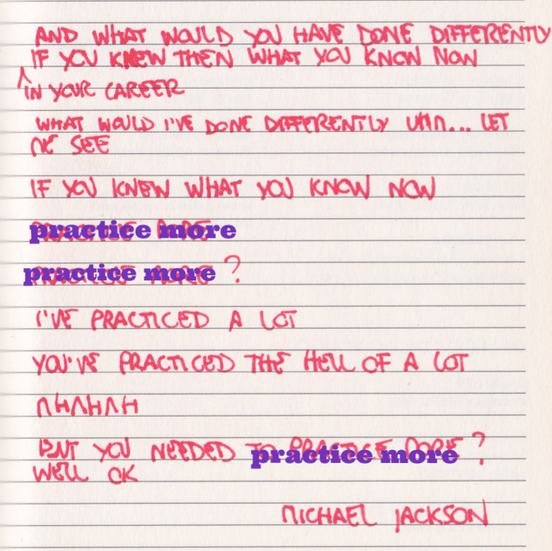 AND WHAT WOULD YOU HAVE DONE DIFFERENTLY
IF YOU KNEW THEN WHAT YOU KNOW NOW
IN YOUR CAREER
WHAT WOULD I'VE DONE DIFFERENTLY UHM... LET
ME SEE
IF YOU KNEW WHAT YOU KNOW NOW
practice more
practice more ?
I'VE PRACTICED A LOT
YOU'VE PRACTICED THE HELL OF A LOT
AHAHAH
BUT YOU NEEDED TO practice more ?
WELL OK
MICHAEL JACKSON